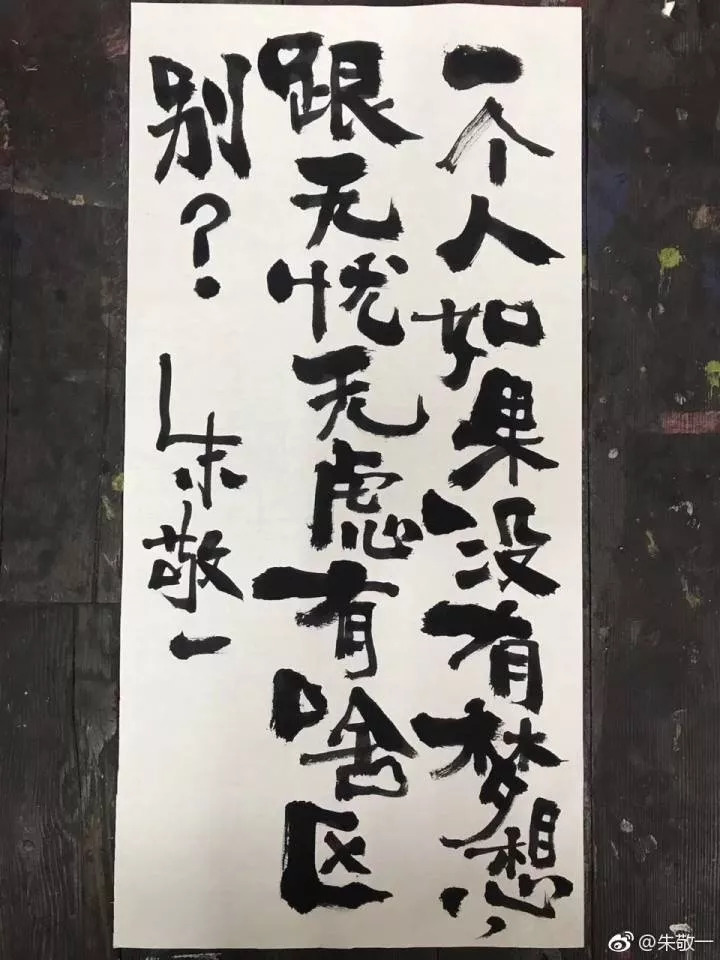 一个人如果没有梦想,
跟无忧无虑有啥区
别?
朱敬一
@朱敬一